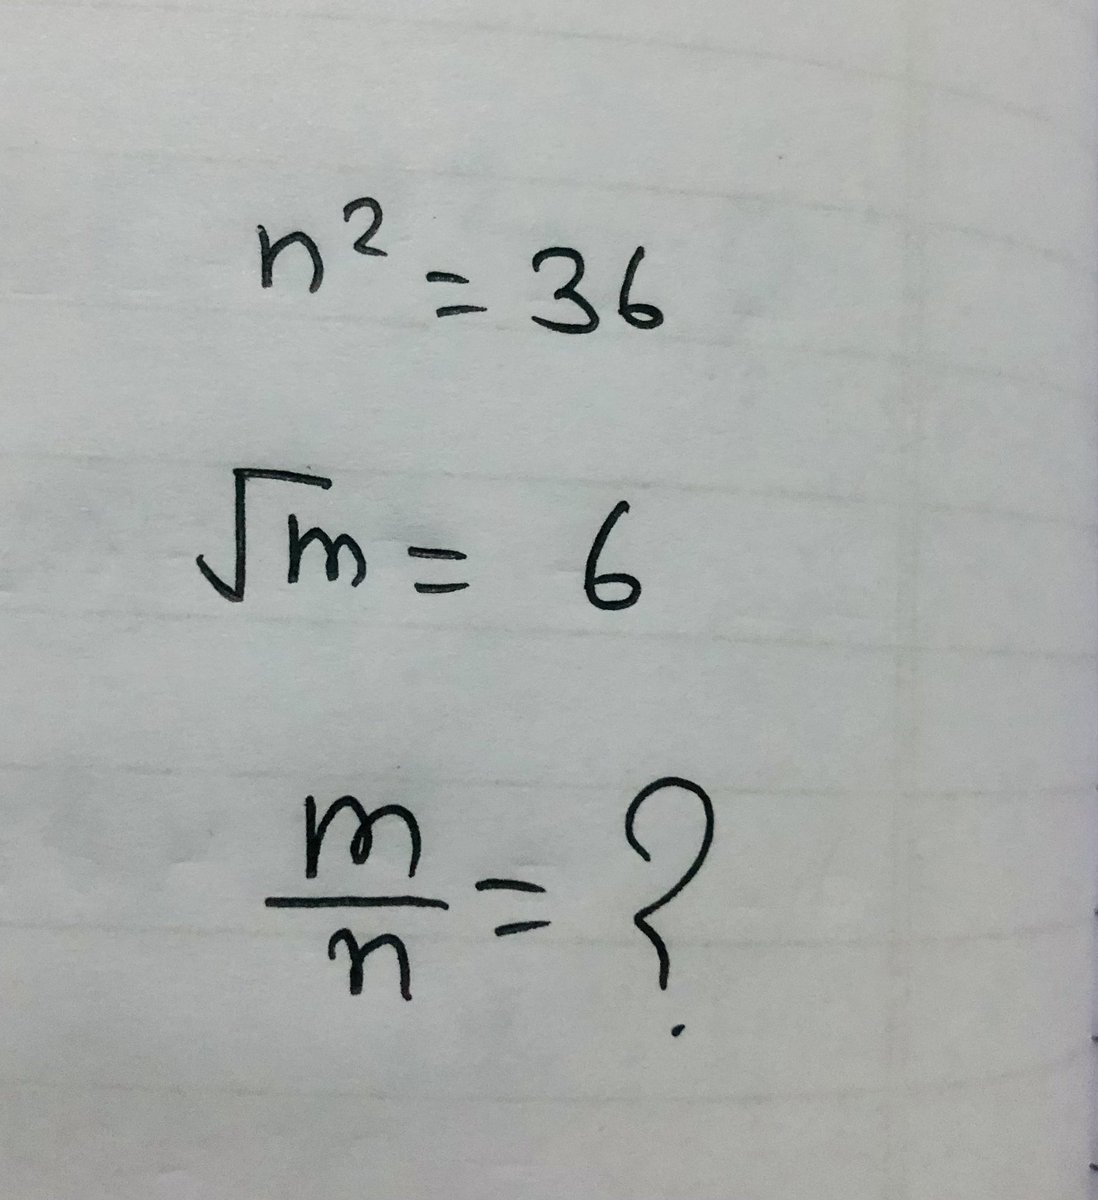 n² = 36
√m = 6
m/n = ?